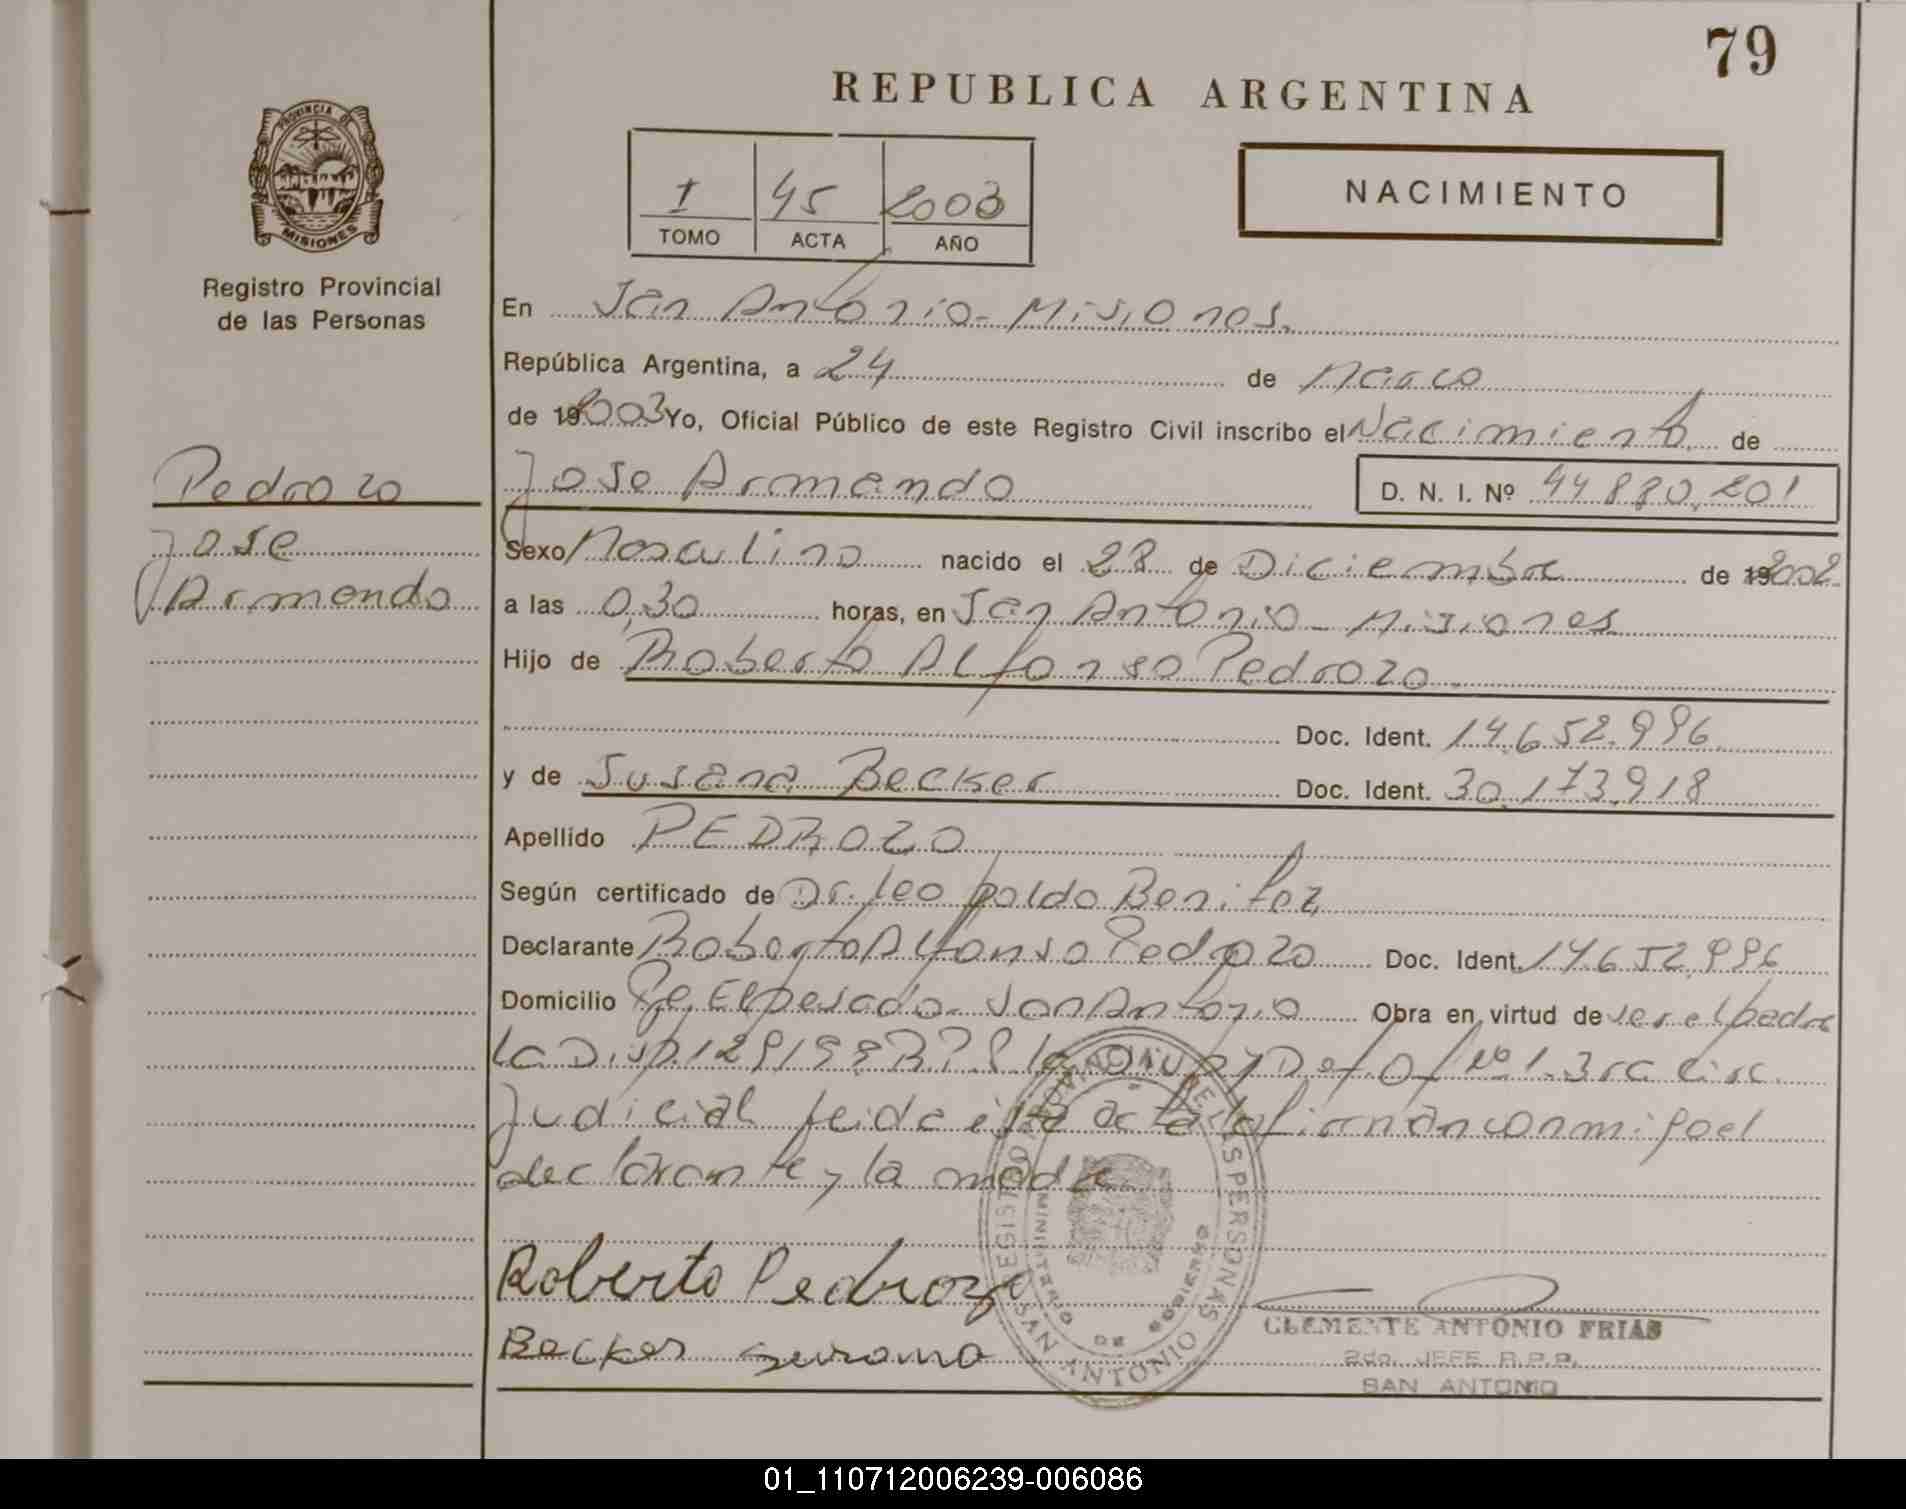 79
REPUBLICA ARGENTINA
PROVINCIA DE
MISIONES
Registro Provincial
de las Personas
I 45 2003
TOMO ACTA AÑO
NACIMIENTO
En San Antonio - Misiones.
República Argentina, a 24 de Marzo
de 192003 Yo, Oficial Público de este Registro Civil inscribo el Nacimiento de
Pedrozo
Jose
Armando
Jose Armando D. N. I. Nº 44880.201
Sexo Masculino nacido el 28 de Diciembre de 192002
a las 0,30 horas, en San Antonio - Misiones
Hijo de Roberto Alfonso Pedrozo.
Doc. Ident. 14.652.996
y de Susana Becker Doc. Ident. 30.173.918
Apellido PEDROZO
Según certificado de Dr. Leopoldo Benitez
Declarante Roberto Alfonso Pedrozo Doc. Ident. 14.652.996
Domicilio El pesado - San Antonio Obra en virtud de ser el padre
La Disp. Nº 1. 3ra Circ.
Judicial leida esta acta la firman conmigo el
declarante y la madre
Roberto Pedrozo
Becker Susana
REGISTRO PROVINCIAL DE LAS PERSONAS
MINISTERIO DE GOBIERNO
SAN ANTONIO
CLEMENTE ANTONIO FRIAS
2do. JEFE R.P.P.
SAN ANTONIO
01_110712006239-006086